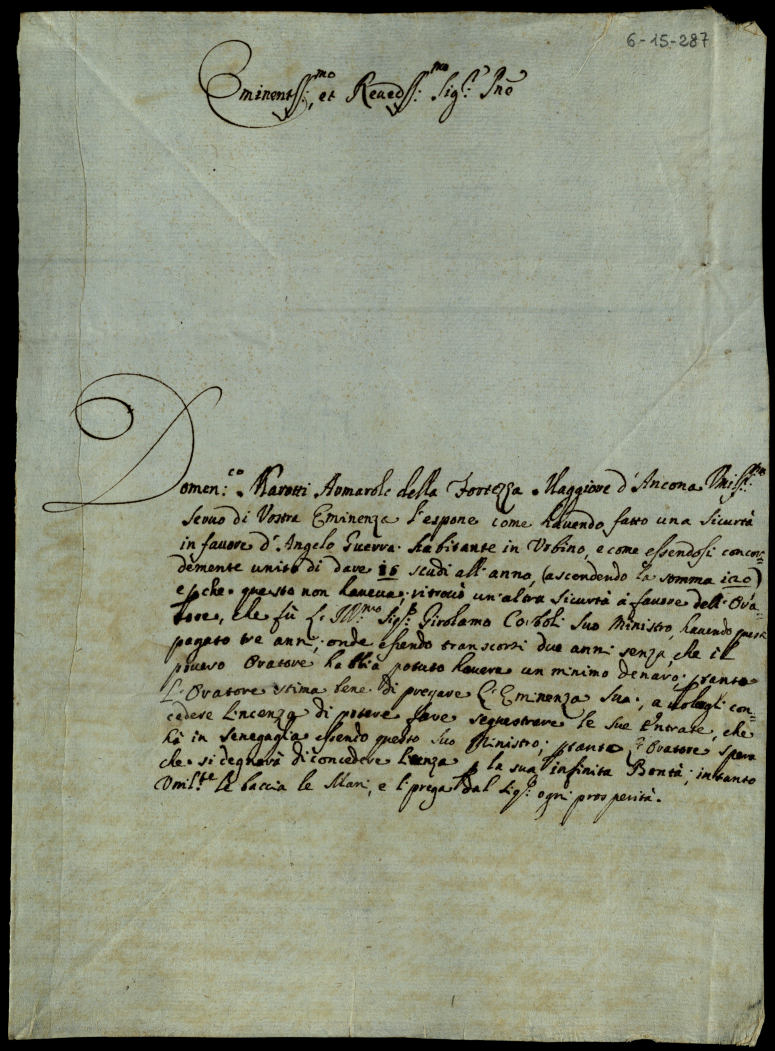 6-15-287
Eminentiss:mo, et Reuerdiss:mo Sig:r Pnõ
Domen:co Marotti Armarolo della Fortezza Maggiore d'Ancona Umiss:mo
Seruo di Vostra Eminenza l'espone come hauendo fatto una Sicurtà
in fauore d'Angelo Guerra habitante in Urbino, e come essendosi concor=
demente unito di dare 15 scudi all'anno, (ascendendo la somma 120)
e pche questo non haueua, ritrouò un'altra Sicurtà à fauore dell'Ora=
tore, che fù l'Ill:mo Sig:r Girolamo Corboli Suo Ministro, hauendo
pagato tre anni, onde essendo transcorsi due anni senza, che il
pouero Oratore habbia potuto hauere un minimo denaro; ptanto
l'Oratore stima bene di pregare l'Eminenza Sua, a con=
cedere lincenza di potere fare sequestrare le sue Entrate, che
hà in Senegaglia essendo questo suo Ministro; ptanto l'Oratore spera
che si degnarà di concedere licenza p la sua infinita Bontà; intanto
Umil:te le baccia le Mani, e li prega dal Sig:r ogni prosperità.